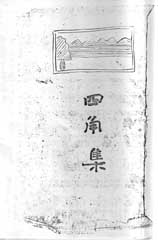 四角集